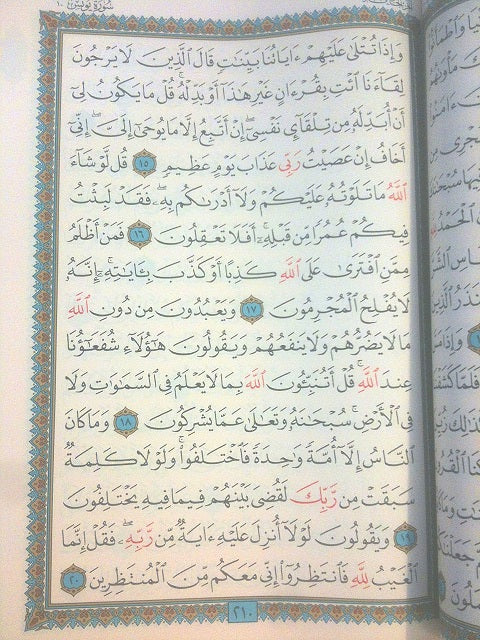 سورة يونس ١٠
وَإِذَا تُتْلَىٰ عَلَيْهِمْ ءَايَاتُنَا بَيِّنَٰتٍ قَالَ ٱلَّذِينَ لَا يَرْجُونَ
لِقَآءَنَا ٱئْتِ بِقُرْءَانٍ غَيْرِ هَٰذَآ أَوْ بَدِّلْهُ ۚ قُلْ مَا يَكُونُ لِىٓ
أَنْ أُبَدِّلَهُۥ مِن تِلْقَآئِ نَفْسِىٓ ۖ إِنْ أَتَّبِعُ إِلَّا مَا يُوحَىٰٓ إِلَىَّ ۖ إِنِّىٓ
أَخَافُ إِنْ عَصَيْتُ رَبِّى عَذَابَ يَوْمٍ عَظِيمٍ ١٥ قُل لَّوْ شَآءَ
ٱللَّهُ مَا تَلَوْتُهُۥ عَلَيْكُمْ وَلَآ أَدْرَىٰكُم بِهِۦ ۖ فَقَدْ لَبِثْتُ
فِيكُمْ عُمُرًا مِّن قَبْلِهِۦٓ ۚ أَفَلَا تَعْقِلُونَ ١٦ فَمَنْ أَظْلَمُ
مِمَّنِ ٱفْتَرَىٰ عَلَى ٱللَّهِ كَذِبًا أَوْ كَذَّبَ بِـَٔايَٰتِهِۦٓ ۚ إِنَّهُۥ
لَا يُفْلِحُ ٱلْمُجْرِمُونَ ١٧ وَيَعْبُدُونَ مِن دُونِ ٱللَّهِ
مَا لَا يَضُرُّهُمْ وَلَا يَنفَعُهُمْ وَيَقُولُونَ هَٰٓؤُلَآءِ شُفَعَٰٓؤُنَا
عِندَ ٱللَّهِ ۚ قُلْ أَتُنَبِّـُٔونَ ٱللَّهَ بِمَا لَا يَعْلَمُ فِى ٱلسَّمَٰوَٰتِ وَلَا
فِى ٱلْأَرْضِ ۚ سُبْحَٰنَهُۥ وَتَعَٰلَىٰ عَمَّا يُشْرِكُونَ ١٨ وَمَا كَانَ
ٱلنَّاسُ إِلَّآ أُمَّةً وَٰحِدَةً فَٱخْتَلَفُوا۟ ۚ وَلَوْلَا كَلِمَةٌ
سَبَقَتْ مِن رَّبِّكَ لَقُضِىَ بَيْنَهُمْ فِيمَا فِيهِ يَخْتَلِفُونَ
١٩ وَيَقُولُونَ لَوْلَآ أُنزِلَ عَلَيْهِ ءَايَةٌ مِّن رَّبِّهِۦ ۖ فَقُلْ إِنَّمَا
ٱلْغَيْبُ لِلَّهِ فَٱنتَظِرُوٓا۟ إِنِّى مَعَكُم مِّنَ ٱلْمُنتَظِرِينَ ٢٠
٢١٠